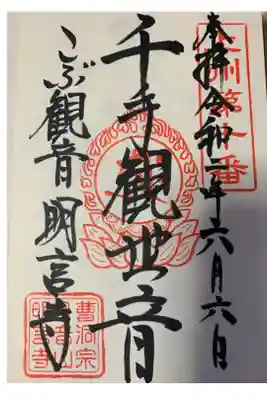 奉拝 令和二年六月六日
千手観世音
こぶ観音 明言寺
曹洞宗
明言寺